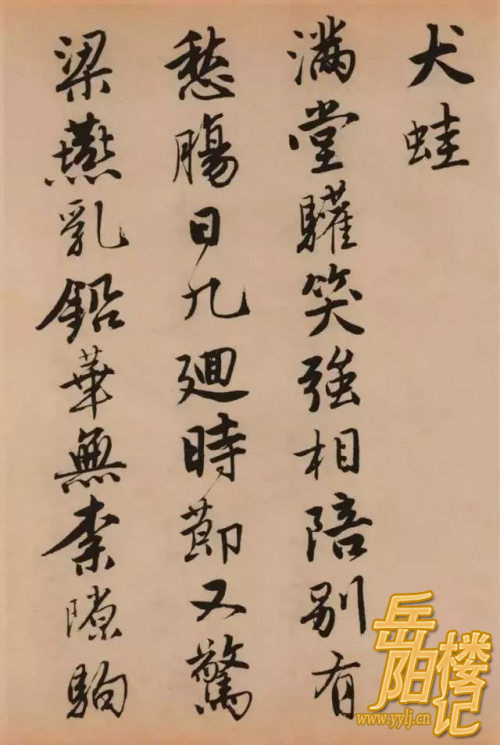 犬蛙
滿堂驩笑強相陪别有
愁腸日九廻時節又驚
梁燕乳鉛華無柰隙駒
岳阳楼记
www.yylj.cn